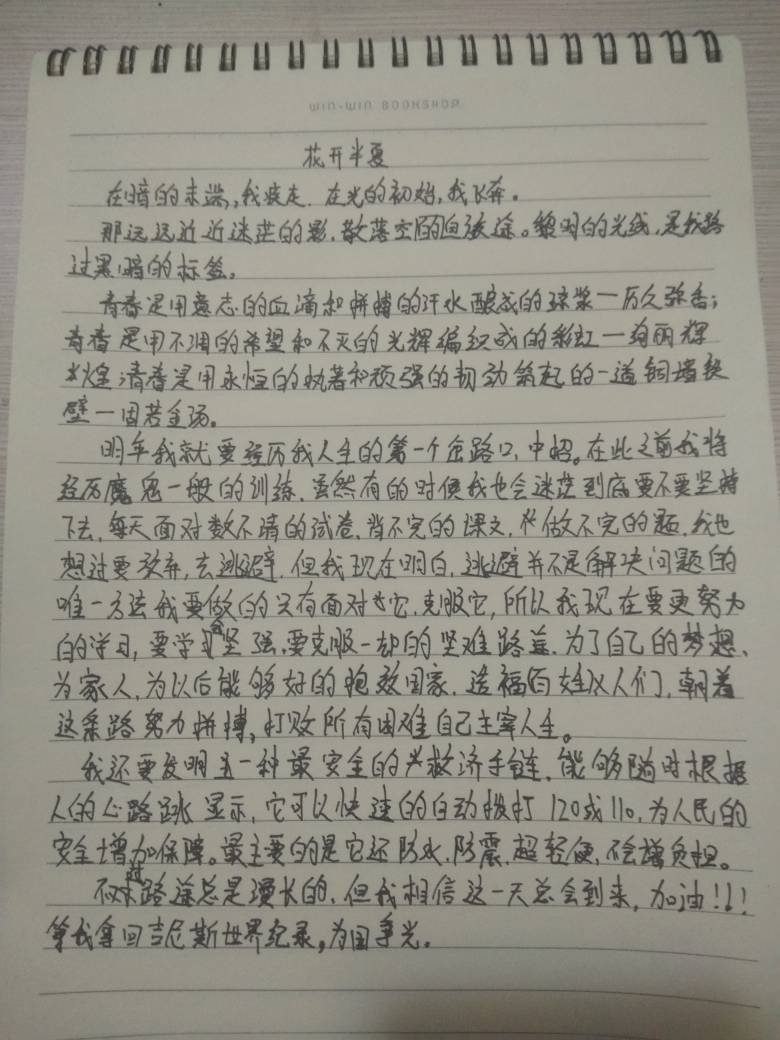 WIN-WIN BOOKSHOP
花开半夏
在暗的末端,我疾走.在光的初始,我飞奔。
那远远近近迷茫的影.散落空白的旅途。黎明的光线,是我路
过黑暗的标签。
青春是用意志的血滴和拼搏的汗水酿成的琼浆一历久弥香;
青春是用不凋的希望和不灭的光辉编织成的彩虹一绚丽辉
煌;青春是用永恒的执著和顽强的韧劲筑起的一道铜墙铁
壁一固若金汤。
明年我就要经历我人生的第一个岔路口,中招。在此之前我将
经历魔鬼一般的训练.虽然有的时候我也会迷茫到底要不要坚持
下去,每天面对数不清的试卷,背不完的课文,做不完的题.我也
想过要放弃,去逃避.但我现在明白,逃避并不是解决问题的
唯一方法我要做的只有面对它,克服它,所以我现在要更努力
的学习,要学会坚强,要克服一切的坚难路途.为了自己的梦想、
为家人,为以后能够好的报效国家.造福百姓人们,朝着
这条路努力拼搏,打败所有困难自己主宰人生。
我还要发明出一种最安全的救济手链,能够随时根据
人的心路跳显示,它可以快速的自动拨打120或110,为人民的
安全增加保障。最主要的是它还防水,防震.超轻便,不会增负担。
不过路途总是漫长的.但我相信这一天总会到来,加油!!!
等我拿回吉尼斯世界纪录,为国争光。